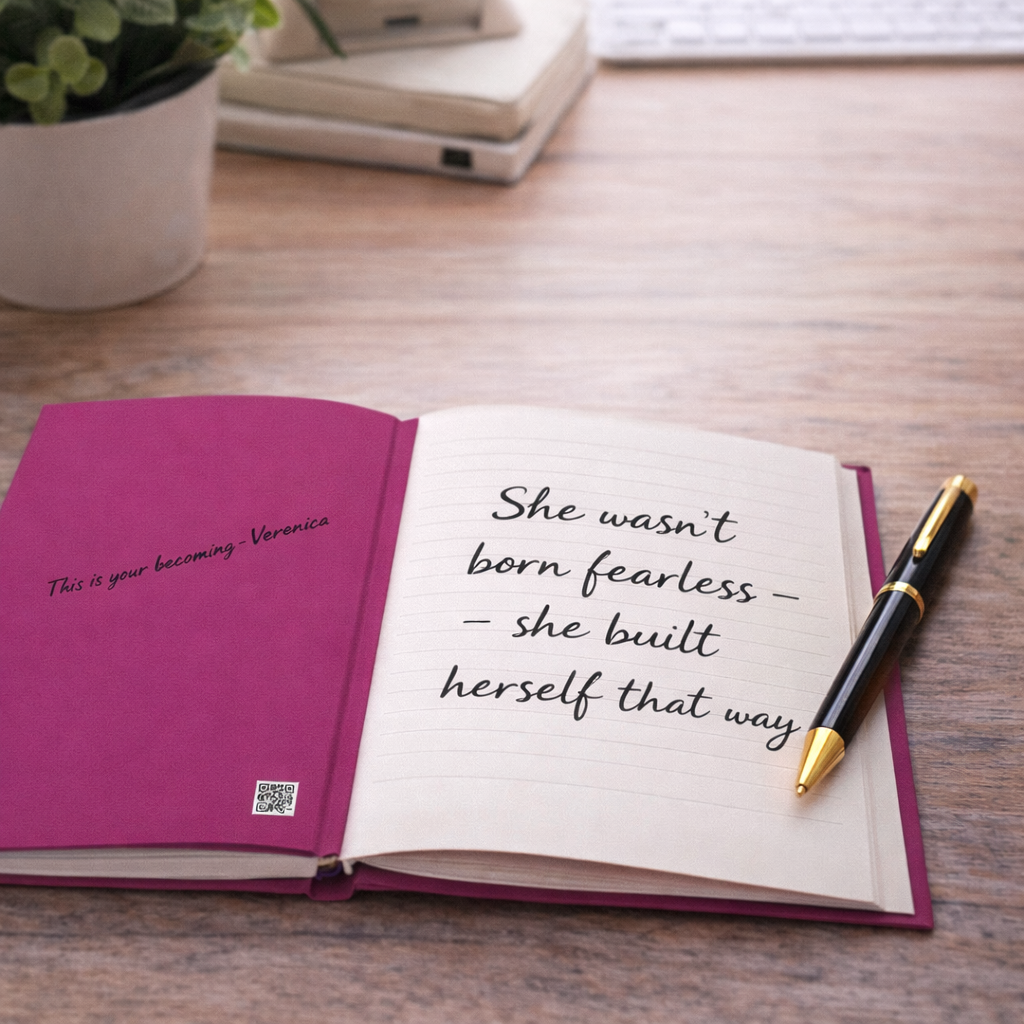 This is your becoming - Verenica
She wasn't
born fearless –
– she built
herself that way